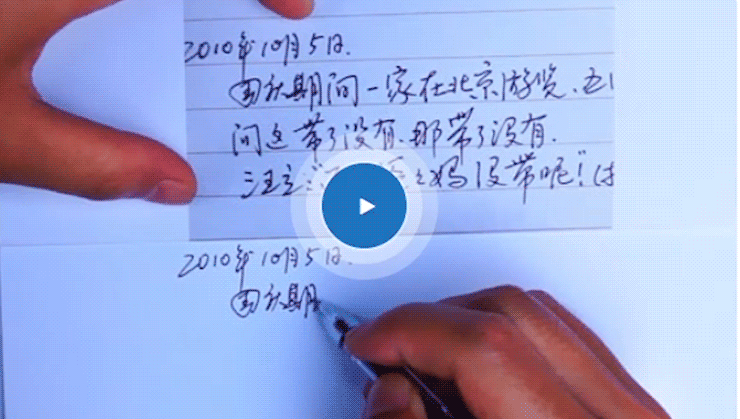 2010年10月5日.
国庆期间一家在北京游览、
问这带了没有、那带了没有.
妈没带呢!"
2010年10月5日.
国庆期